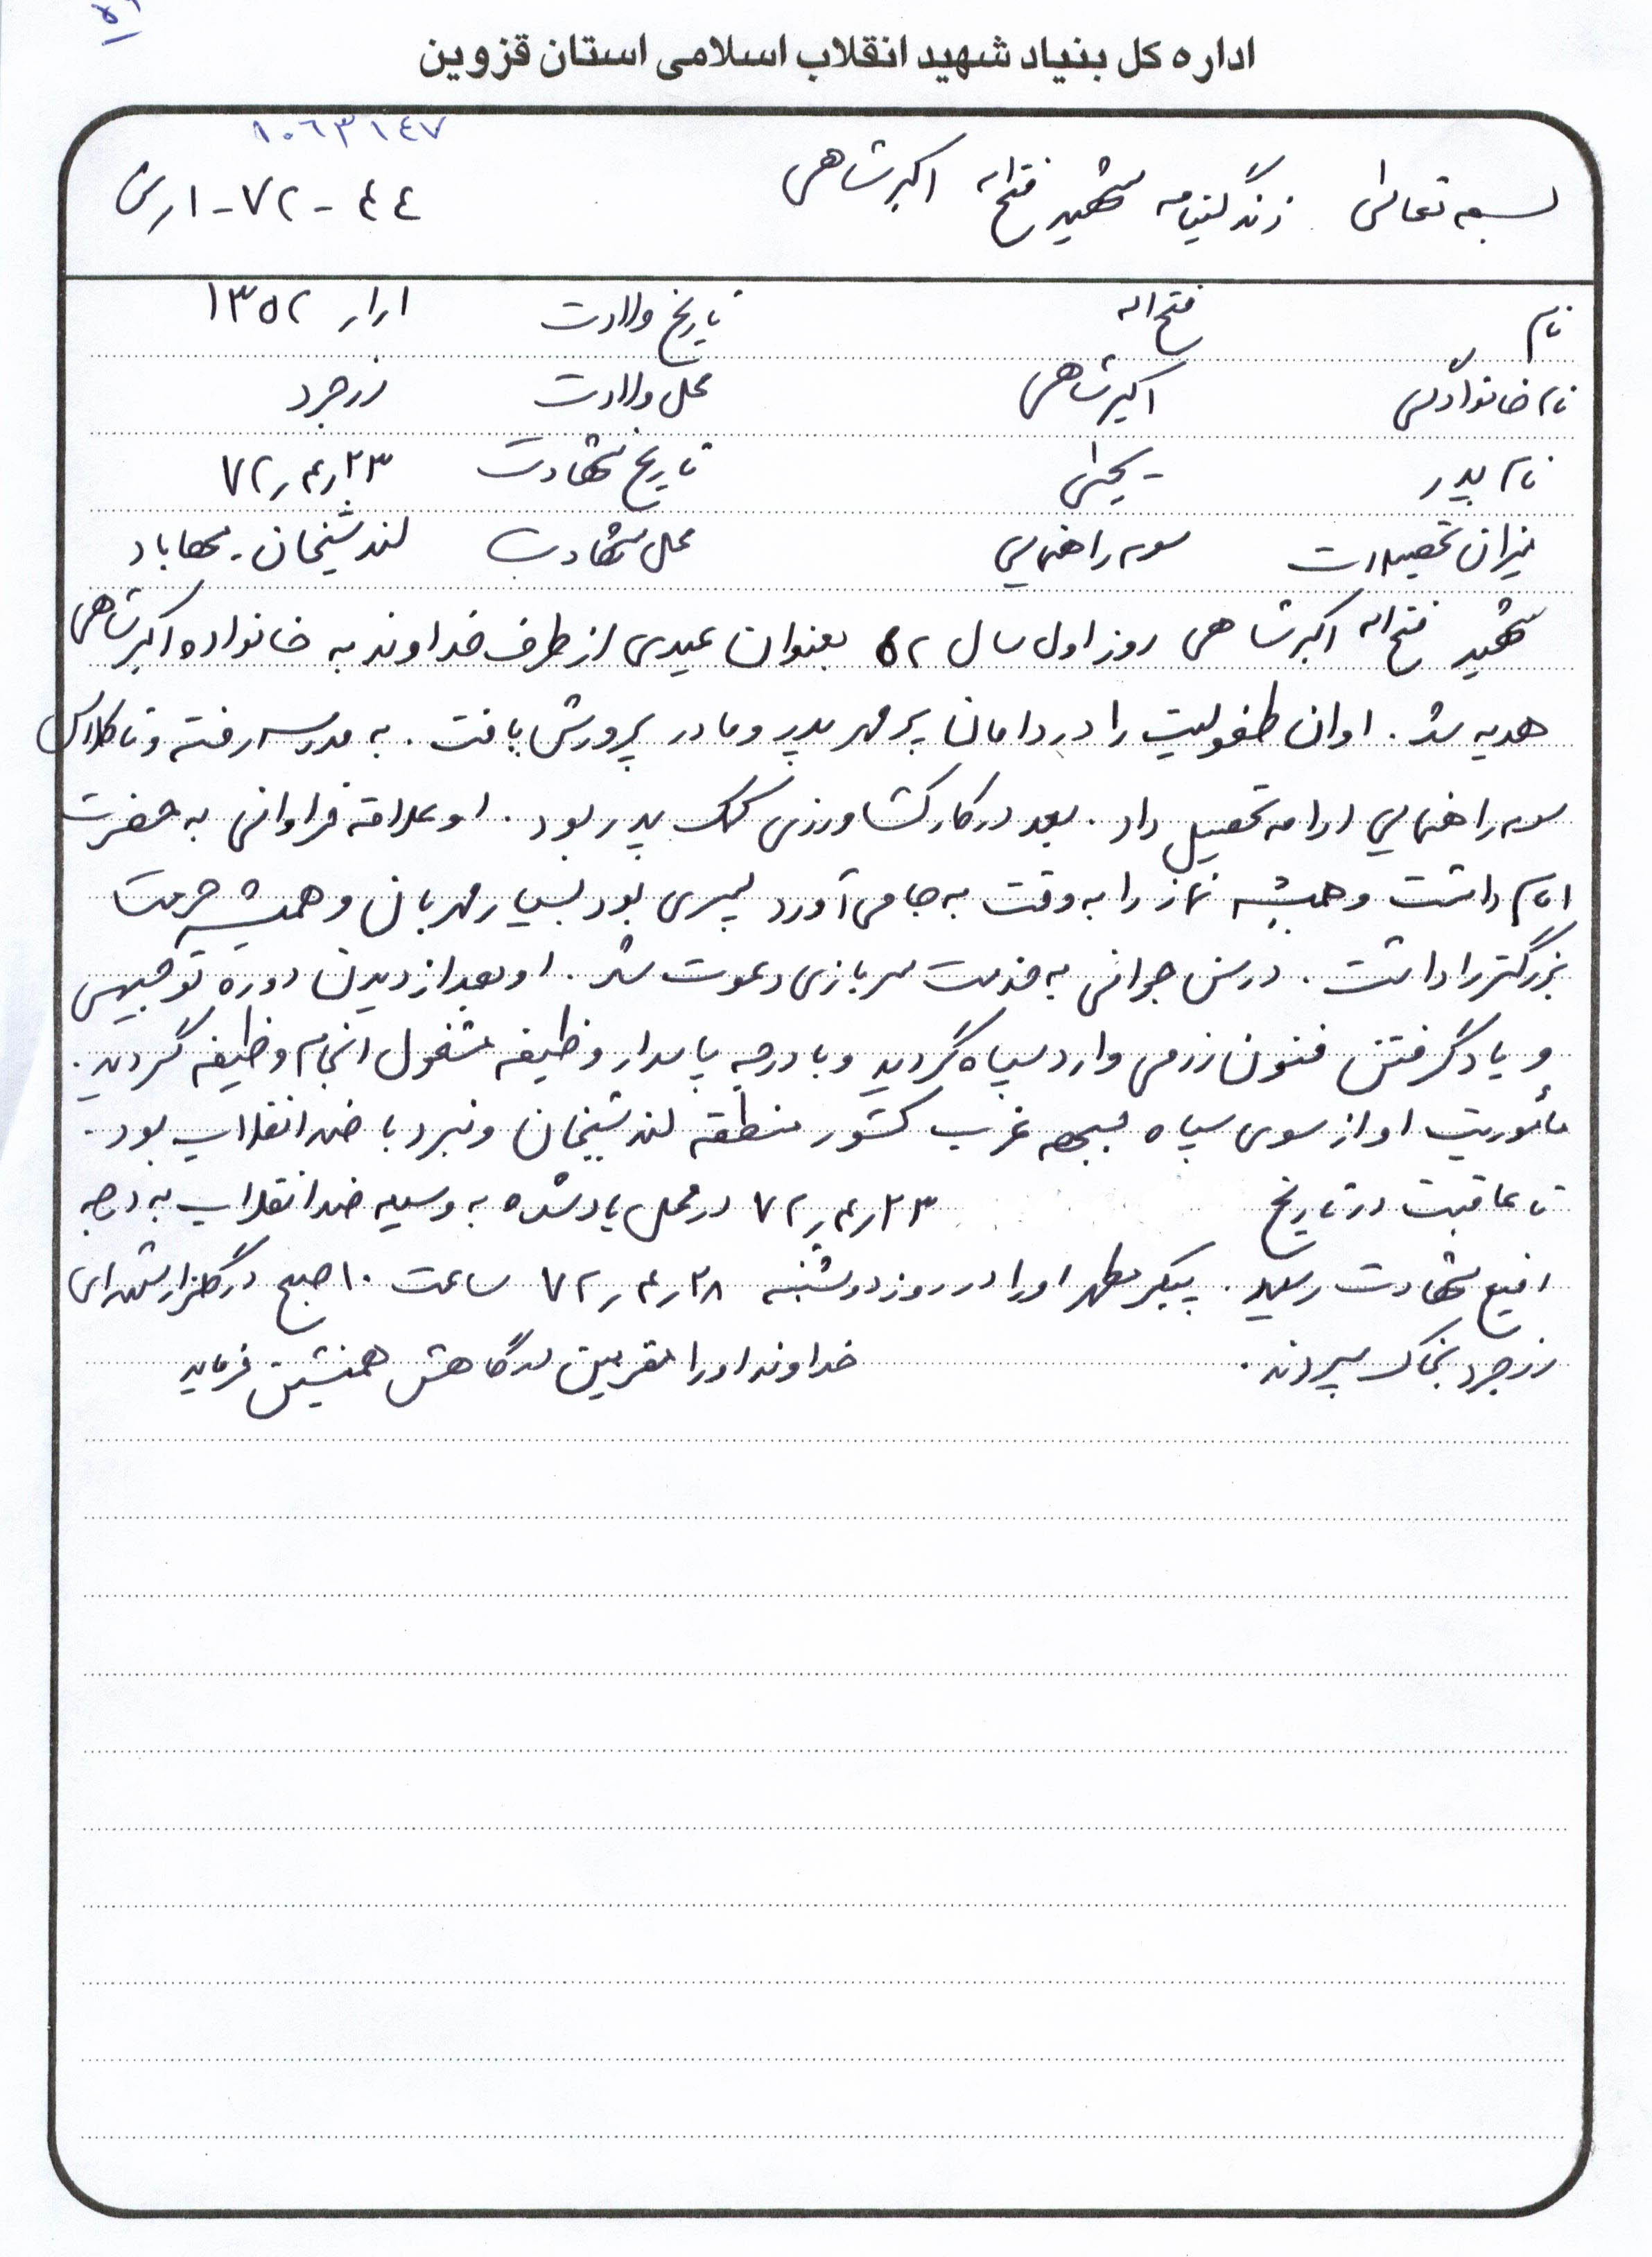 اداره کل بنیاد شهید انقلاب اسلامی استان قزوین
۱۰۶۳۱۴۷
بسمه تعالی زندگینامه شهید فتح اله اکبرشاهی ۴۴-۷۲-۱رس
نام فتح اله تاریخ ولادت ۱ر۱ر۱۳۵۲
نام خانوادگی اکبرشاهی محل ولادت زرجرد
نام پدر یحیی تاریخ شهادت ۲۳ر۴ر۷۲
میزان تحصیلات سوم راهنمایی محل شهادت لندشیخان - مهاباد
شهید فتح اله اکبرشاهی روز اول سال ۵۲ بعنوان عیدی از طرف خداوند به خانواده اکبرشاهی
هدیه شد . اوان طفولیت را در دامان پر مهر پدر و مادر پرورش یافت . به مدرسه رفته و تا کلاس
سوم راهنمایی ادامه تحصیل داد . بعد در کار کشاورزی کمک پدر بود . او علاقه فراوانی به حضرت
امام داشت و همیشه نماز را به وقت به جا می آورد پسری بود بسیار مهربان و همیشه حرمت
بزرگتر را داشت . در سن جوانی به خدمت سربازی دعوت شد . او بعد از دیدن دوره توجیهی
و یاد گرفتن فنون رزمی وارد سپاه گردید و با درجه پاسدار وظیفه مشغول انجام وظیفه گردید .
مأموریت او از سوی سپاه بجبهه غرب کشور منطقه لندشیخان و نبرد با ضد انقلاب بود .
تا عاقبت در تاریخ ۲۳ر۴ر۷۲ در محل یاد شده به وسیله ضد انقلاب به درجه
رفیع شهادت رسید . پیکر مطهر او را در روز دوشنبه ۲۸ر۴ر۷۲ ساعت ۱۰ صبح در گلزار شهدای
زرجرد بخاک سپردند . خداوند او را مقربین درگاهش همنشین فرماید